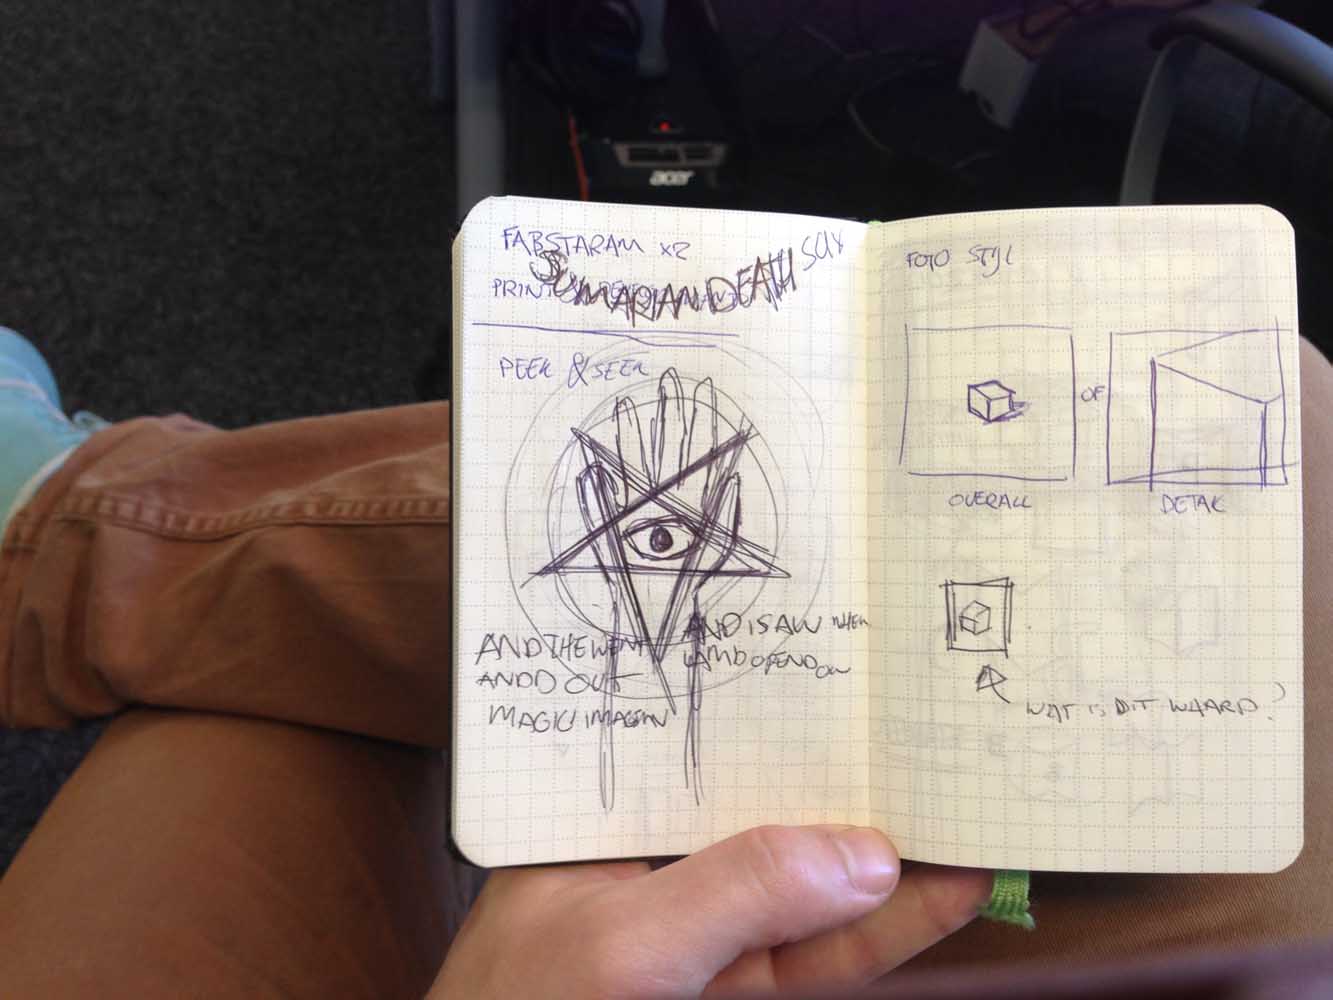 acer
FABSTARAM x2
SUMARIAN DEATH
PRINT
PEEK & SEEK
AND THE WENT
ANDD OUT
MAGIC IMAGEN
AND I SAW WHEN
LAMB OPEND ON
FOTO STIJL
OF
OVERALL
DETAIL
WAT IS DIT WAARD?